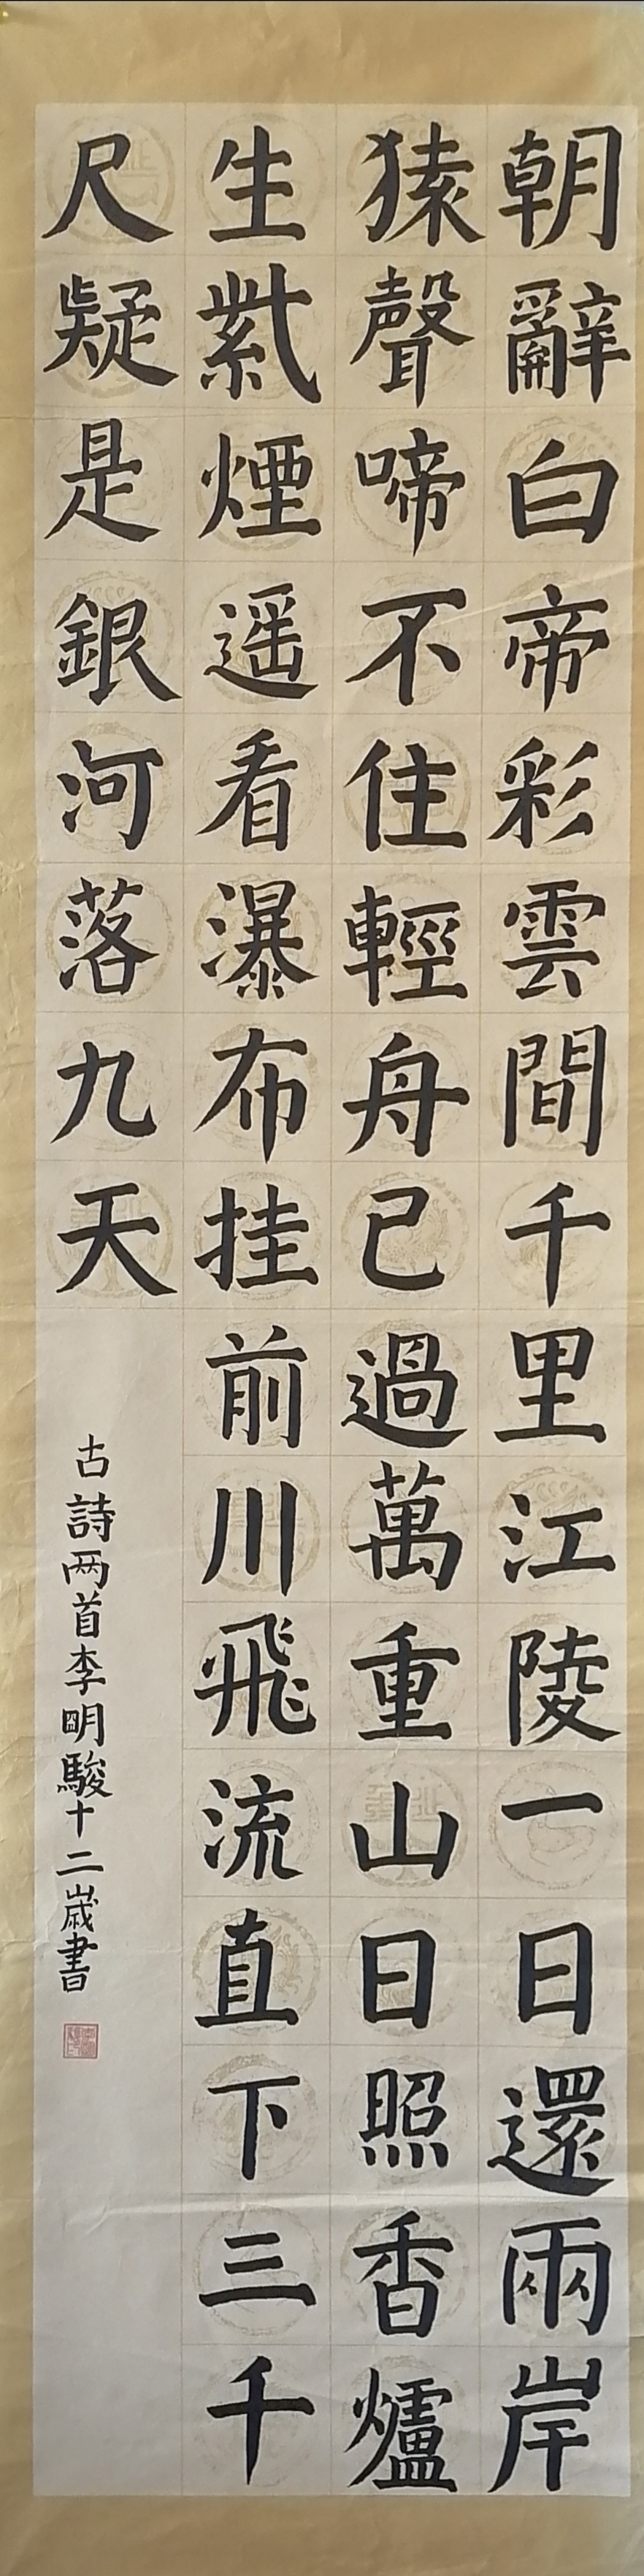 朝辭白帝彩雲間千里江陵一日還兩岸
猿聲啼不住輕舟已過萬重山日照香爐
生紫煙遥看瀑布挂前川飛流直下三千
尺疑是銀河落九天
古詩两首李明駿十二歲書